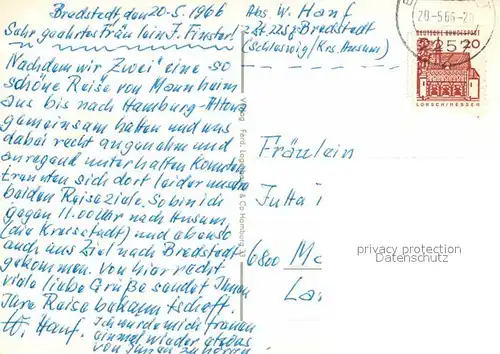 Bredstedt, den 20-5.1966
Sehr geehrtes Fräulein J. Finster!
Nachdem wir "Zwei" eine so
schöne Reise von Mannheim
aus bis nach Hamburg-Altona
gemeinsam hatten und uns
dabei recht angenehm und
anregend unterhalten konnten
trennten sich dort leider unsere
beiden Reiseziele. So bin ich
gegen 11.00 Uhr nach Husum,
(die Kreisstadt) und abends
auch ans Ziel nach Bredstedt
gekommen. Von hier recht
viele liebe Grüße sendet Ihnen
Ihre Reisebekanntschaft.
W. Hanf. Ich würde mich freuen
einmal wieder etwas
von Ihnen zu hören
Abs. W. Hanf
z.Zt. 2257 Bredstedt
(Schleswig/Krs. Husum)
20-5.66-20
2257
DEUTSCHE BUNDESPOST
20
LORSCH/HESSEN
Ferd. & Co Hamburg
Fräulein
Jutta
6800 Ma
La
privacy protection
Datenschutz